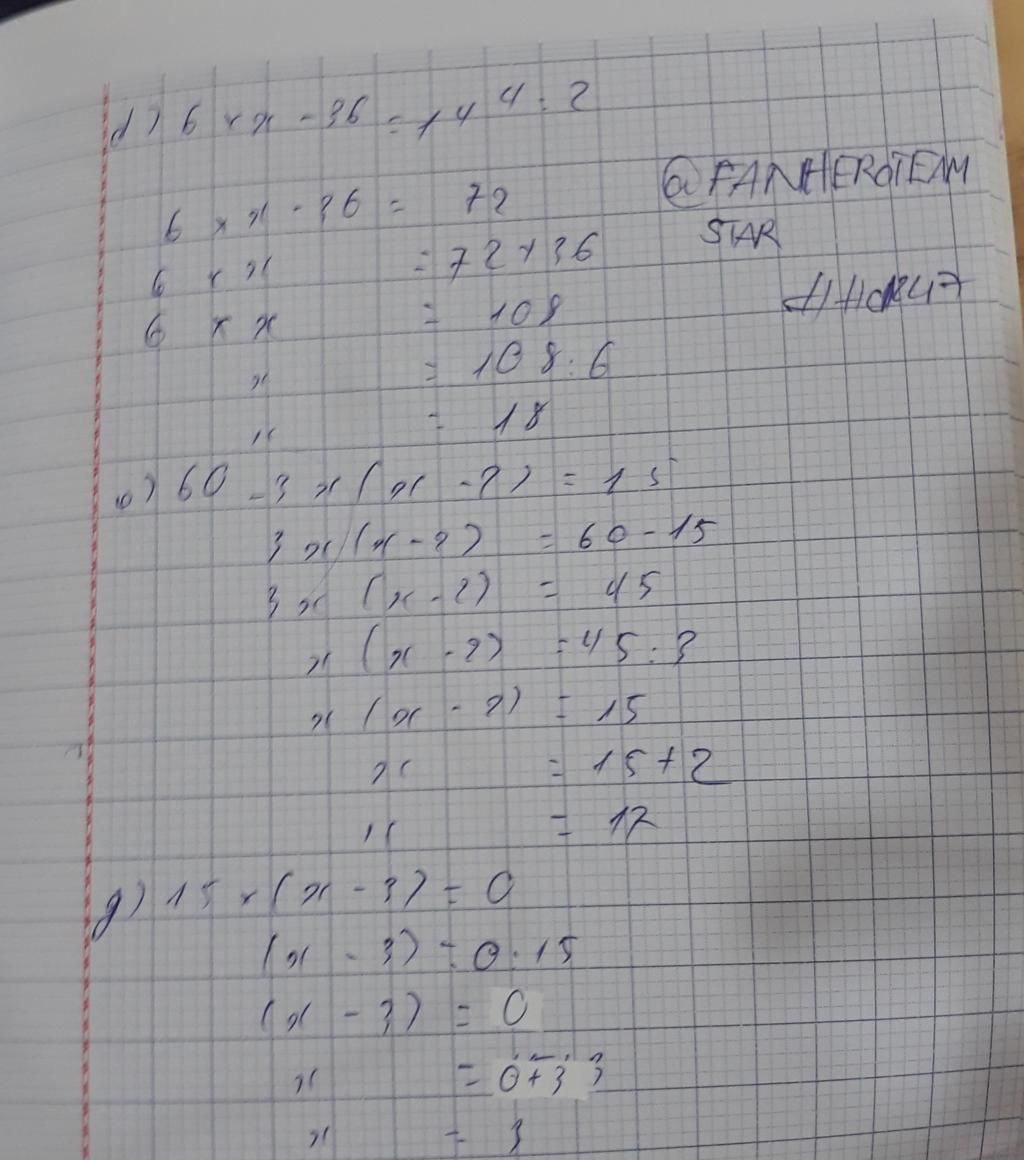 d) 6 x x - 36 = 144 : 2
6 x x - 36 = 72
@FANHEROTEAM
STAR
6 x x = 72 + 36
6 x x = 108
x = 108 : 6
" = 18
e) 60 - 3 x (x - 2) = 15
3 x (x - 2) = 60 - 15
3 x (x - 2) = 45
x (x - 2) = 45 : 3
x (x - 2) = 15
x = 15 + 2
" = 17
g) 15 x (x - 3) = 0
(x - 3) = 0 : 15
(x - 3) = 0
x = 0 + 3 3
x = 3